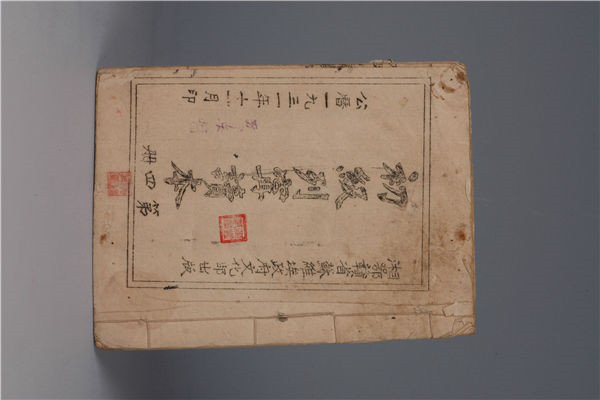 湘鄂贛省蘇維埃政府文化部出版
初級列寧讀本
第四册
公曆一九三一年月印